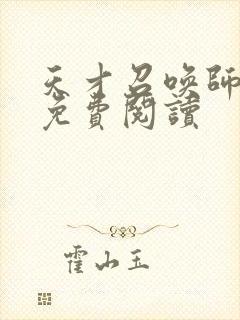 天才召喚師
免費閱讀
霍山玉